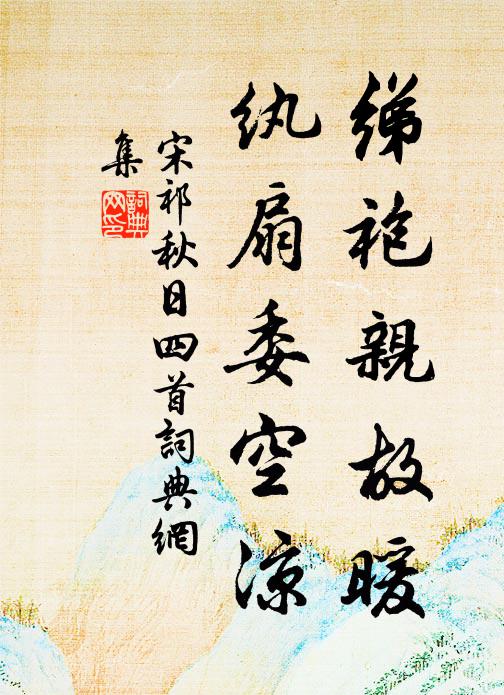 綈袍親故暖
紈扇委空涼
宋祁秋日四首詞典網
集
詞典網印